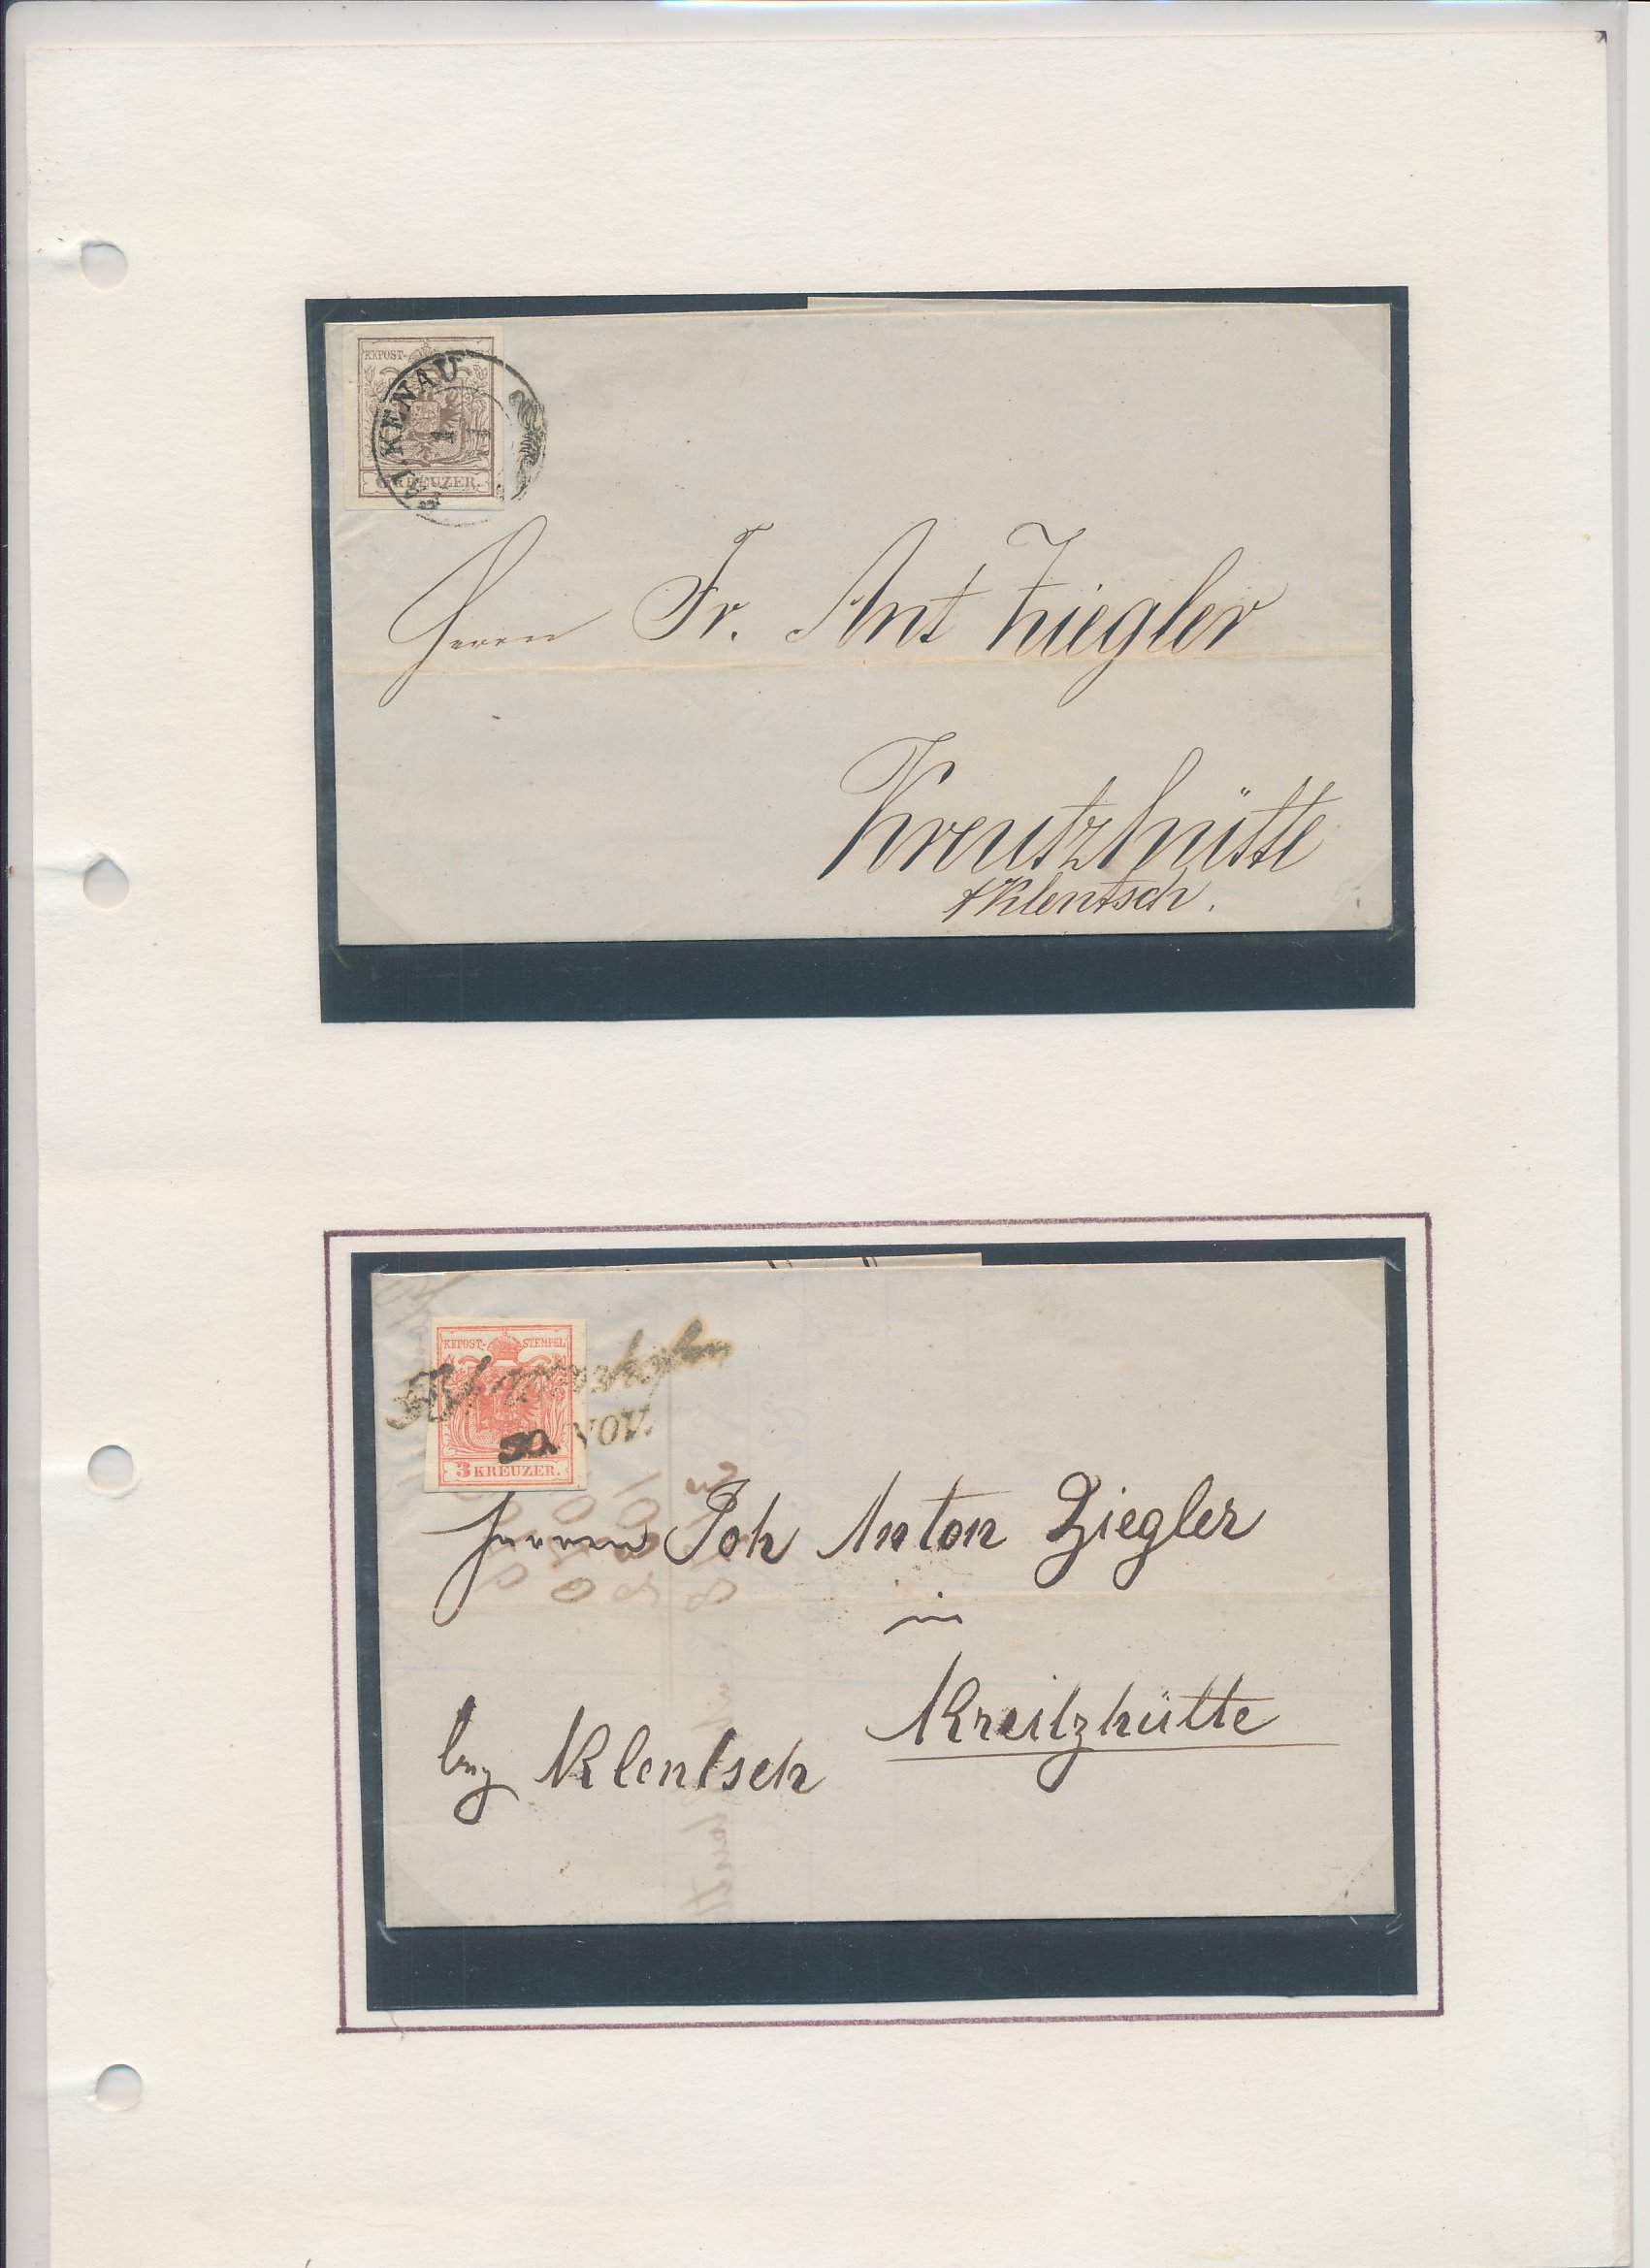 KKPOST-
KENAU
1
6 KREUZER.
Herrn Fr. Ant Ziegler
Kreutzhütte
Klentsch.
KKPOST-STEMPEL
NOV.
3 KREUZER.
Herrn Joh Anton Ziegler
in
Kreitzhütte
bey Klentsch